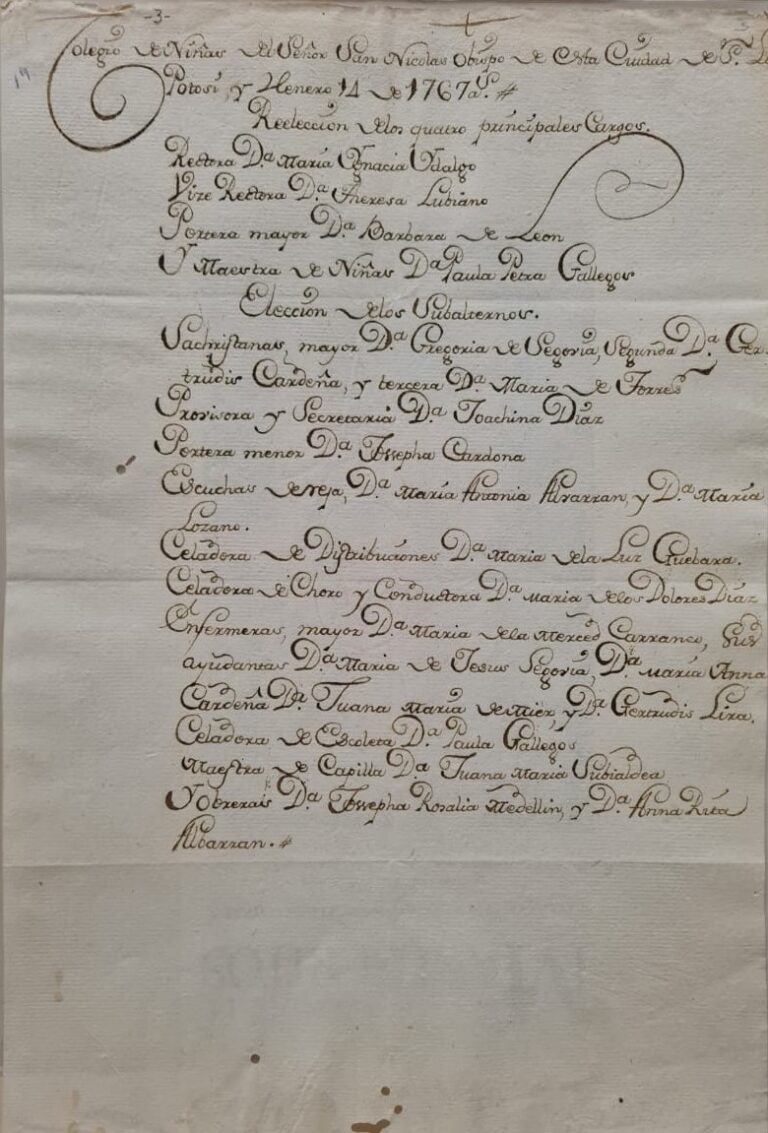 -3-
Colegio de Niñas del Señor San Nicolas Obispo de Esta Ciudad de Sn. L
Potosi, y Henero 14 de 1767 as.
Reeleccion delos quatro principales Cargos.
Rectora Da. Maria Ygnacia Ydalgo
Vize Rectora Da. Theresa Lubiano
Portera mayor Da. Barbara de Leon
Y Maestra de Niñas Da. Paula Petra Gallegos
Eleccion delos Subalternos.
Sachristanas, mayor Da. Gregoria de Segovia, Segunda Da. Ger-
trudis Cardeña, y tercera Da. Maria de Torres
Provisora y Secretaria Da. Joachina Diaz
Portera menor Da. Josepha Cardona
Escuchas de reja, Da. Maria Antonia Alvarran, y Da. Maria
Lozano.
Celadora de Distribuciones Da. Maria dela Luz Guebara.
Celadora de Choro y Conductora Da. Maria delos Dolores Diaz
Enfermeras, mayor Da. Maria dela Merced Carranco, Sus
ayudantas Da. Maria de Jesus Segovia, Da. Maria Anna
Cardeña Da. Juana Maria de Mier, y Da. Gertrudis Lira.
Celadora de Escoleta Da. Paula Gallegos
Maestra de Capilla Da. Juana Maria Subialdea
Y obreras Da. Josepha Rosalia Medellin, y Da. Anna Rita
Albarran.